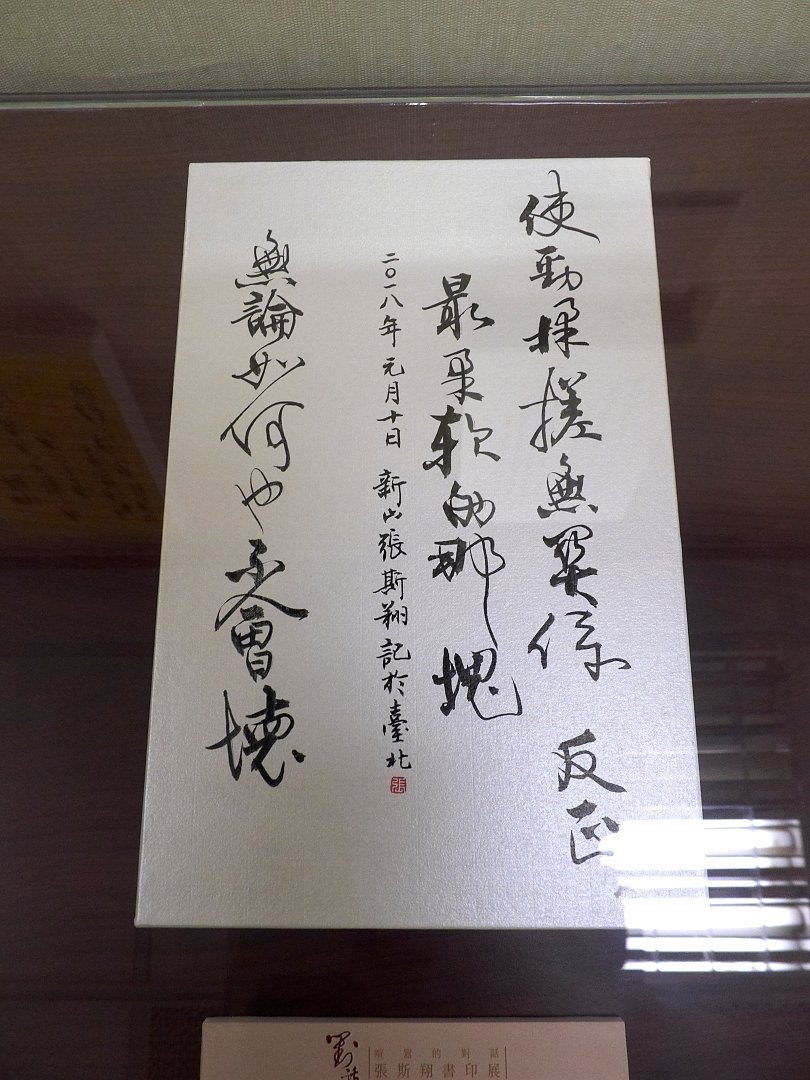 使勁揉搓無關係 反正
最柔軟的那塊
二〇一八年元月十日 新山張斯翔記於臺北
張
無論如何也不會壞
喧囂的對話
張斯翔書印展